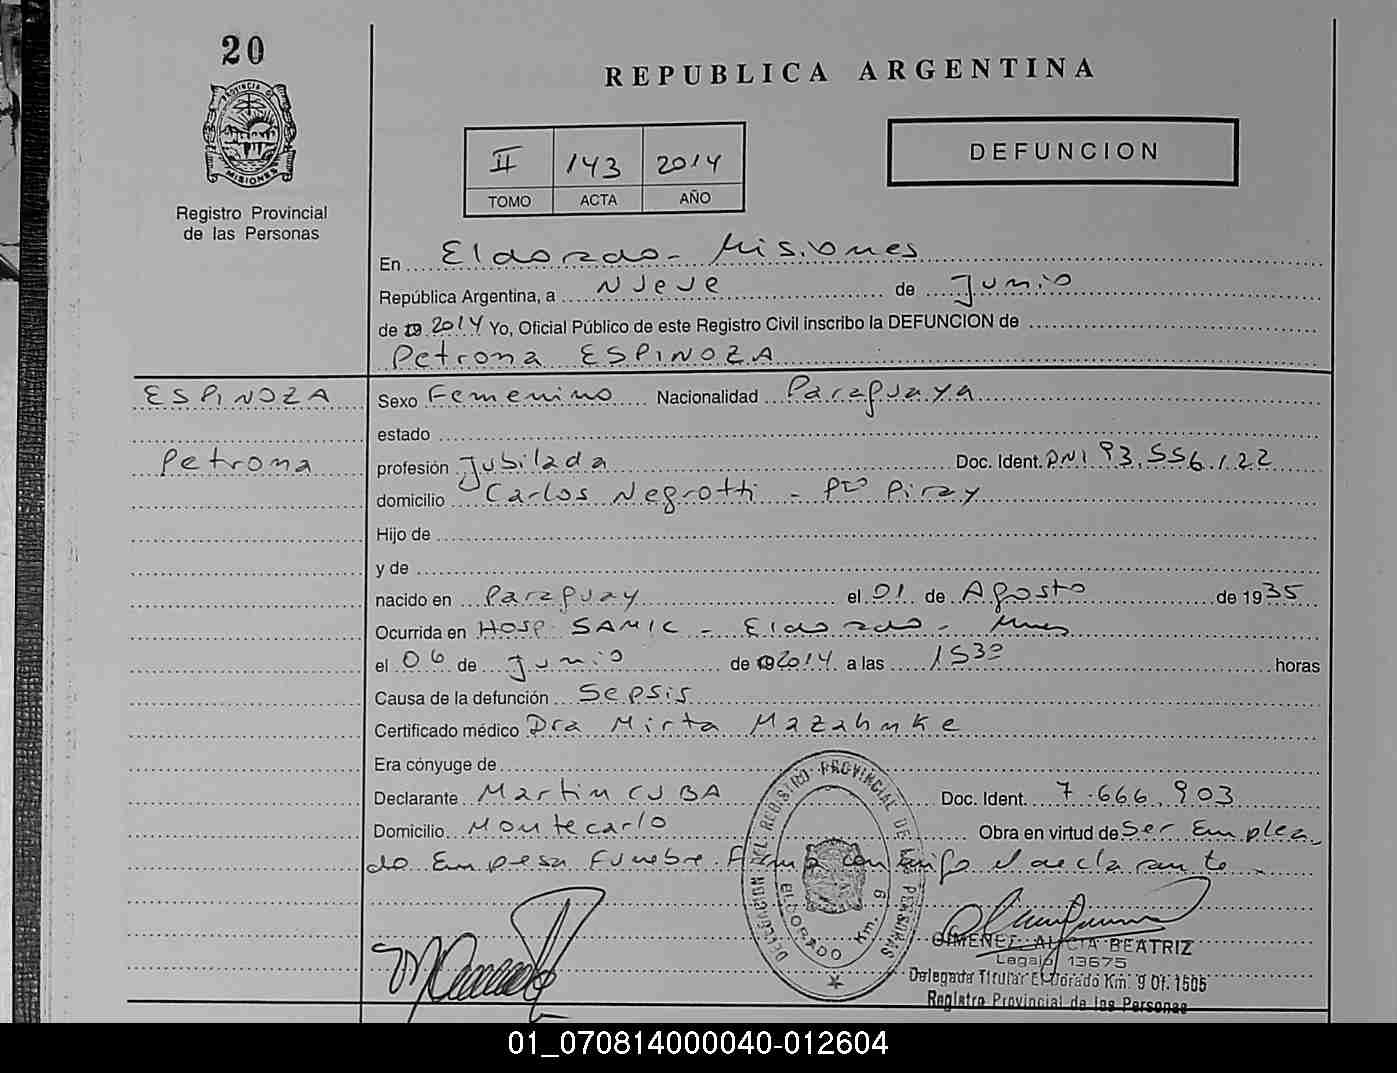 20
PROVINCIA DE
MISIONES
Registro Provincial
de las Personas
REPUBLICA ARGENTINA
II 143 2014
TOMO ACTA AÑO
DEFUNCION
En Eldorado - Misiones
República Argentina, a Nueve de Junio
de 19 2014 Yo, Oficial Público de este Registro Civil inscribo la DEFUNCION de
Petrona ESPINOZA
ESPINOZA
Petrona
Sexo Femenino Nacionalidad Paraguaya
estado
profesión Jubilada Doc. Ident. DNI 93.556.122
domicilio Carlos Negrotti - Pto Piray
Hijo de
y de
nacido en Paraguay el 01 de Agosto de 1935
Ocurrida en Hosp SAMIC - Eldorado - Mnes
el 06 de Junio de 19 2014 a las 1530 horas
Causa de la defunción Sepsis
Certificado médico Dra Mirta Mazahnke
Era cónyuge de
Declarante Martin CUBA Doc. Ident. 7.666.903
Domicilio Montecarlo Obra en virtud de Ser Emplea
do Empresa Funebre. Firma conmigo el declarante
DELEGACION DEL REGISTRO PROVINCIAL DE LAS PERSONAS
ELDORADO Km. 9
GIMENEZ ALICIA BEATRIZ
Legajo 13675
Delegada Titular Eldorado Km. 9 Of. 1505
Registro Provincial de las Personas
01_070814000040-012604